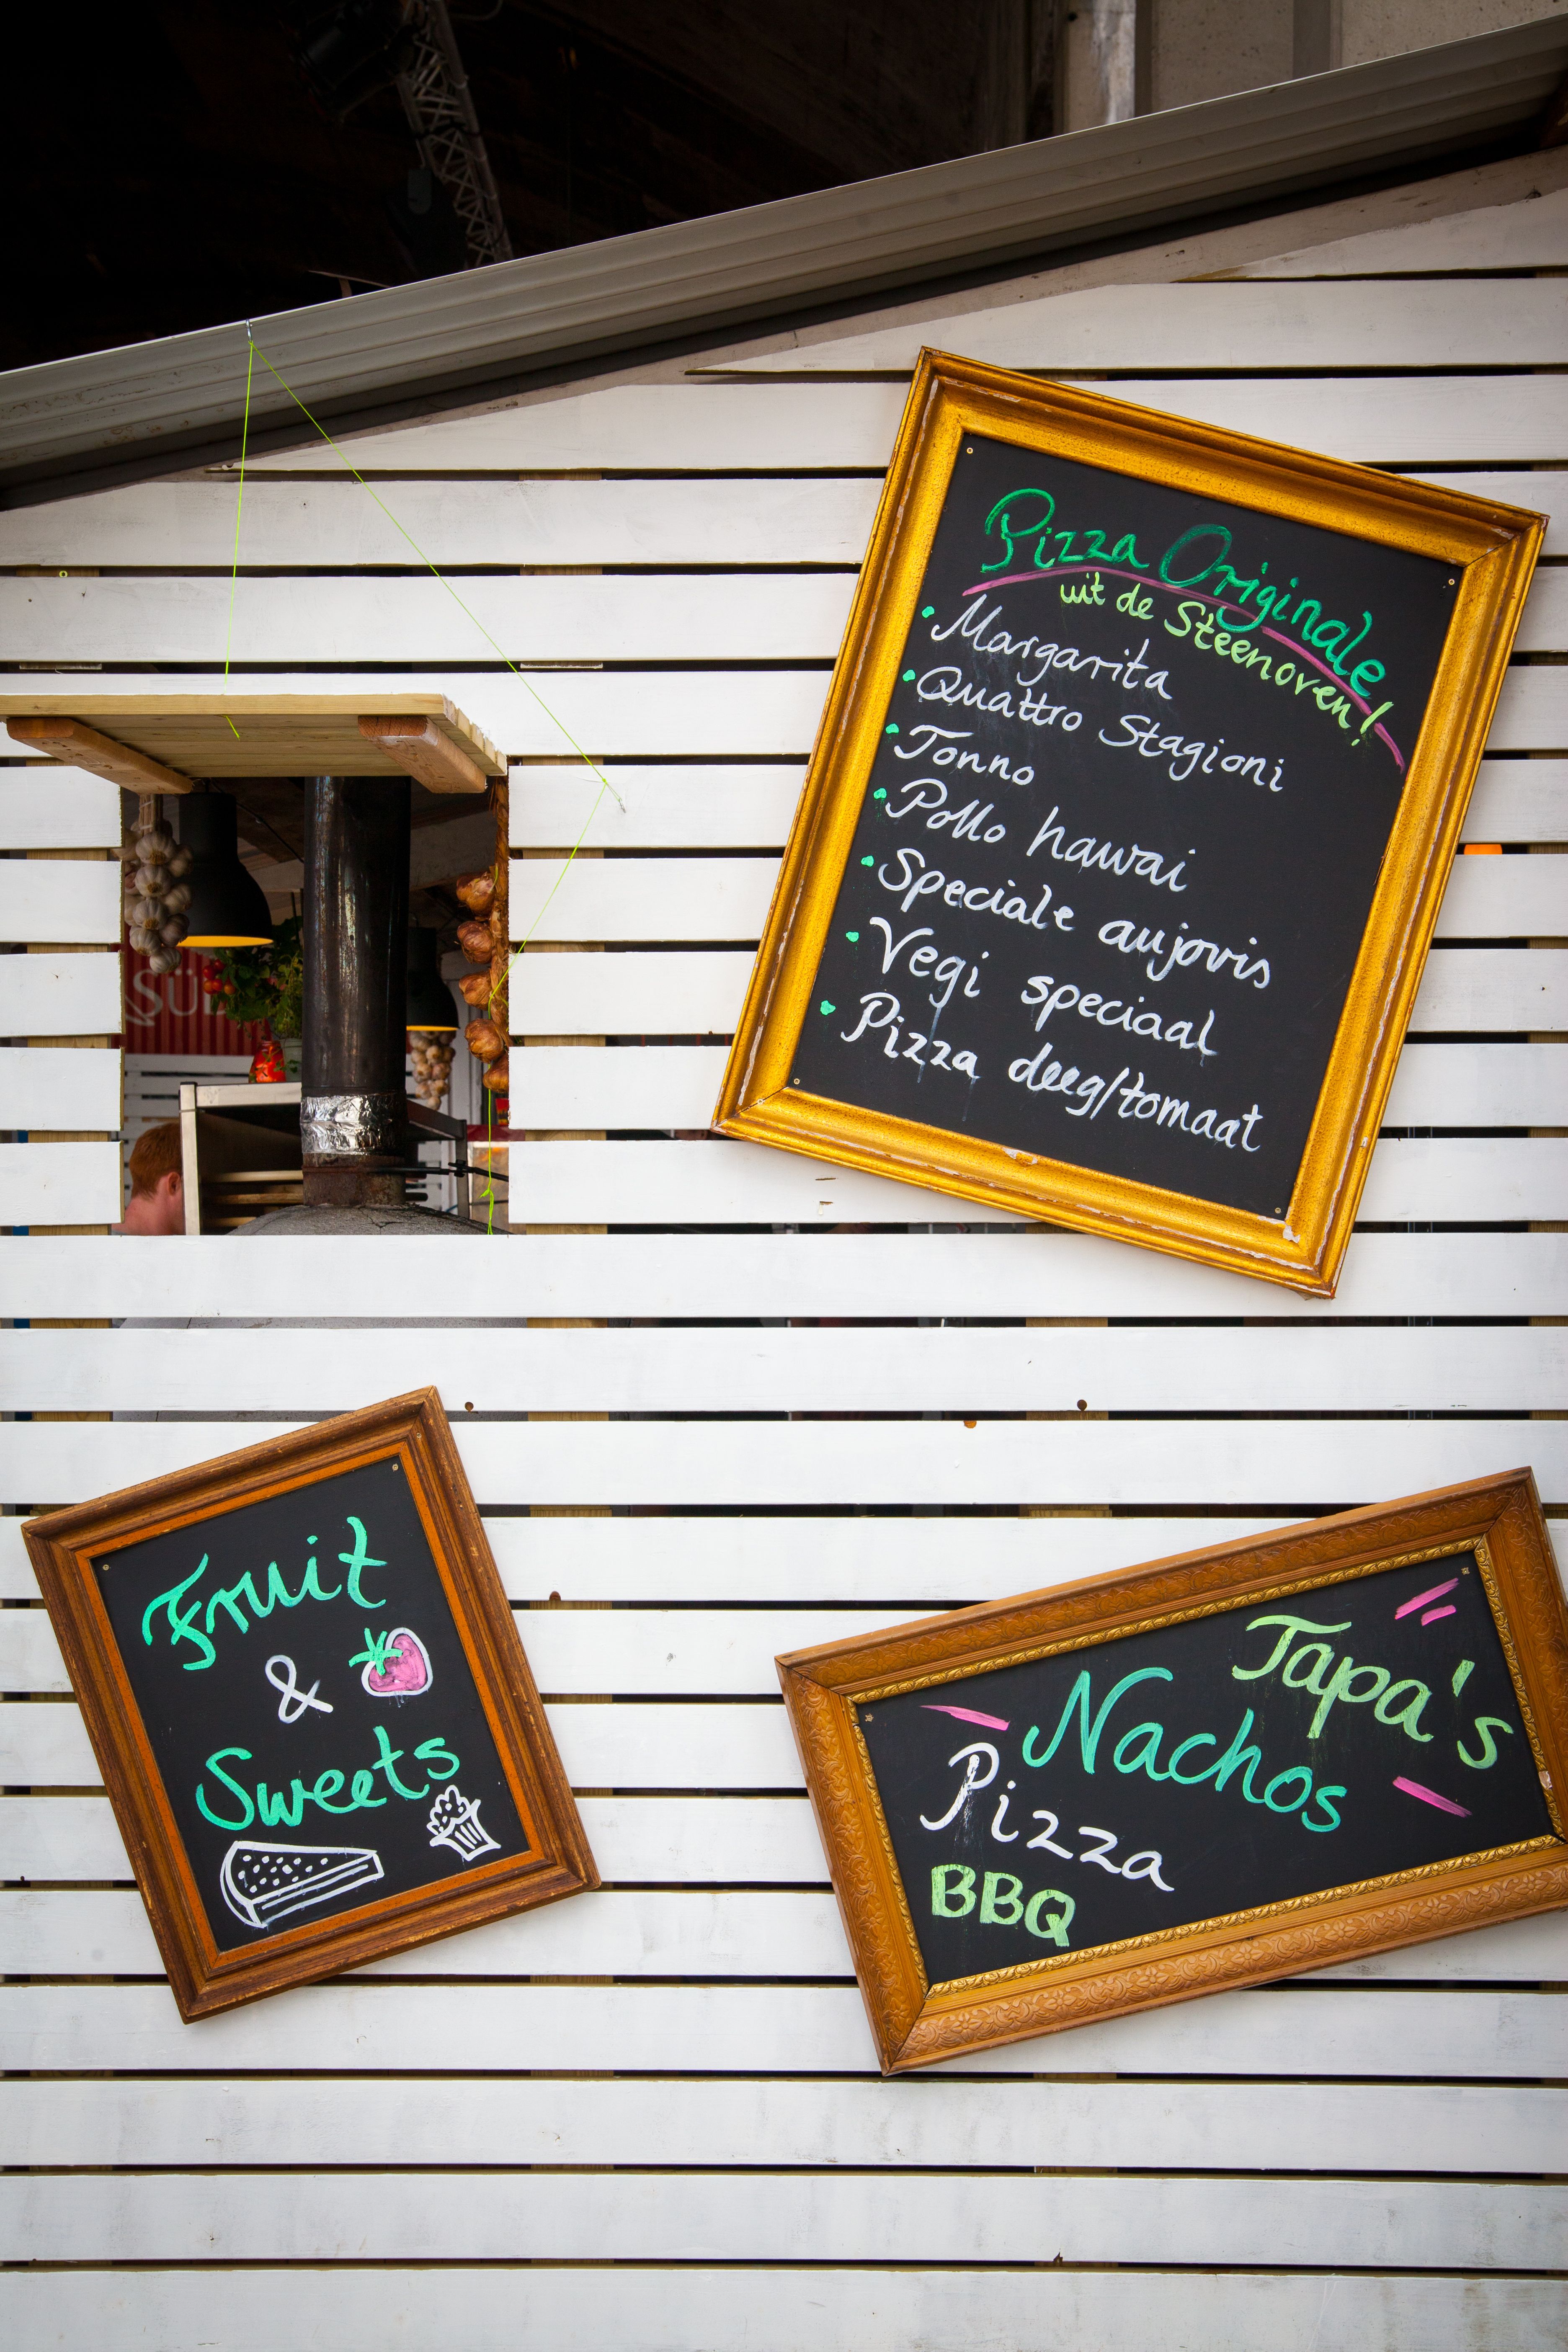 Pizza Originale
uit de Steenoven!
Margarita
Quattro Stagioni
Tonno
Pollo hawai
Speciale anjovis
Vegi speciaal
Pizza deeg/tomaat
Fruit
&
Sweets
Tapa's
Nachos
Pizza
BBQ